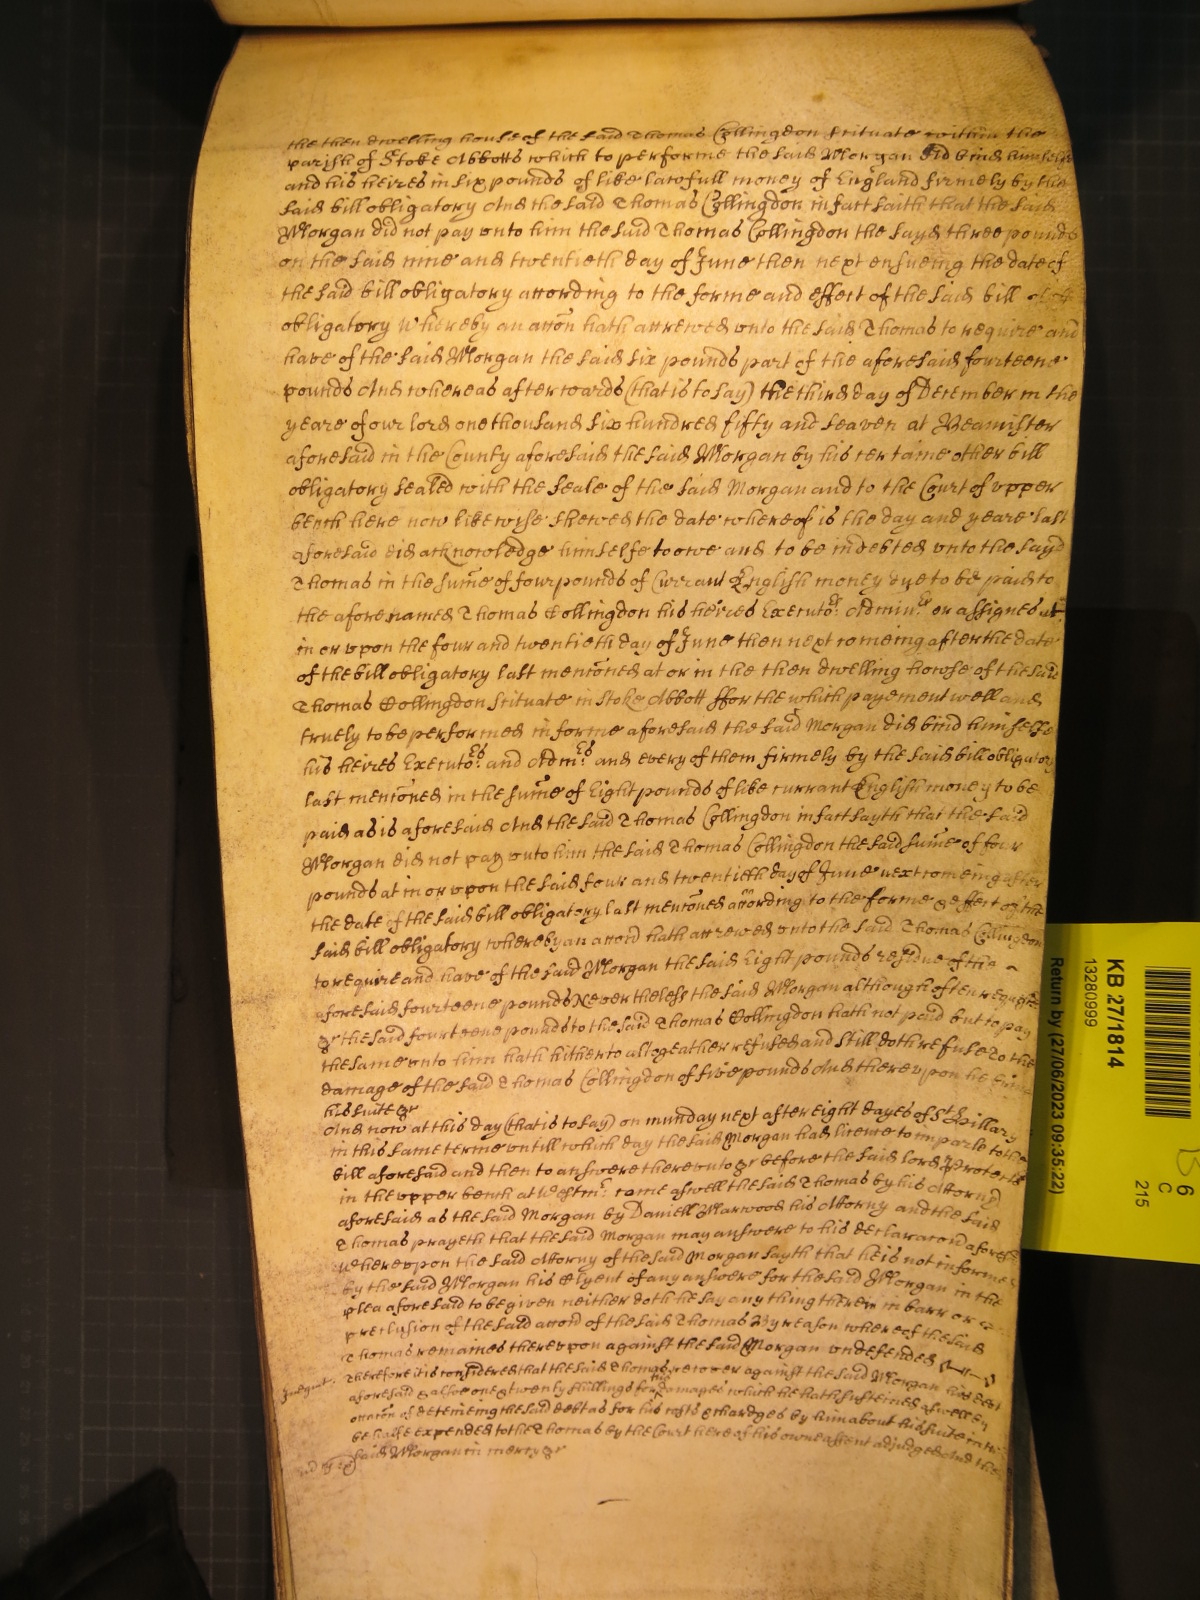 the then dwelling house of the said Thomas Collingdon scituate within the
parish of Stoke Abbotts which to performe the said Morgan did bind himselfe
and his heires in six pounds of like lawfull money of England firmely by the
said bill obligatory And the said Thomas Collingdon in fact saith that the said
Morgan did not pay vnto him the said Thomas Collingdon the sayd three pounds
on the said nine and twentieth day of June then next ensueing the date of
the said bill obligatory according to the forme and effect of the said bill
obligatory whereby an accon hath accrewed vnto the said Thomas to require and
have of the said Morgan the said six pounds part of the aforesaid fourteene
pounds And whereas afterwards (that is to say) the third day of December in the
yeare of our lord one thousand six hundred fifty and seaven at Beamister
aforesaid in the County aforesaid the said Morgan by his certaine other bill
obligatory sealed with the seale of the said Morgan and to the Court of vpper
bench here now likewise shewed the date whereof is the day and yeare last
aforesaid did acknowledge himselfe to owe and to be indebted vnto the sayd
Thomas in the sume of four pounds of Currant English money dye to be paid to
the aforenamed Thomas Collingdon his heires Executors Adminrs or assignes at
in or vpon the four and twentieth day of June then next comeing after the date
of the bill obligatory last mentoned at or in the then dwelling howse of the said
Thomas Collingdon scituate in Stoke Abbott ffor the which payement well and
truely to be performed in forme aforesaid the said Morgan did bind himselfe
his heires Executors and Admrs and every of them firmely by the said bill obligatory
last mentoned in the sume of Eight pounds of like currant English money to be
paid as is aforesaid And the said Thomas Collingdon in fact sayth that the said
Morgan did not pay vnto him the said Thomas Collingdon the said sume of four
pounds at in or vpon the said four and twentieth day of June next comeing after
the date of the said bill obligatory last mentoned according to the forme & effect of the
said bill obligatory whereby an accon hath accrewed vnto the said Thomas Collingdon
to require and have of the said Morgan the said Eight pounds residue of the
aforesaid fourteene pounds Neverthelesse the said Morgan although often required
&c the said fourteene pounds to the said Thomas Collingdon hath not paid but to pay
the same vnto him hath hitherto altogeather refused and still doth refuse To the
damage of the said Thomas Collingdon of five pounds And therevpon he bringeth
his suite &c
And now at this day (that is to say) on munday next after eight dayes of St Hillary
in this same terme vntill which day the said Morgan had licence to imparle to the
bill aforesaid and then to answere therevnto &c before the said lord Protector
in the vpper bench at Westmr come aswell the said Thomas by his Attorny
aforesaid as the said Morgan by Daniell Marwood his Attorny and the said
Thomas prayeth that the said Morgan may answere to his declaracon aforesd
wherevpon the said Attorny of the said Morgan sayth that he is not informed
by the said Morgan his Clyent of any answere for the said Morgan in the
plea aforesaid to be given neither doth he say any thing therein in barr or
preclusion of the said accon of the said Thomas By reason whereof the said
Thomas remaines therevpon against the said Morgan vndefended
Judgmt. Therefore it is considered that the said Thomas recover against the said Morgan his debt
aforesaid & alsoe one & twenty shillings for his damages which he hath susteined aswell by
occacon of deteineing the said debt as for his costs & chardges by him about his suite in this
behalfe expended to the Thomas by the Court here of his owne assent adjudged And the
said Morgan in mercy &c
KB 27/1814
13280999
Return by (27/06/2023 09:35:22)
B 6
C
215